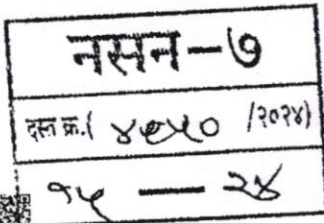 नसन-७
दस्त क्र.( ४७५० /२०२४)
१५ — २४